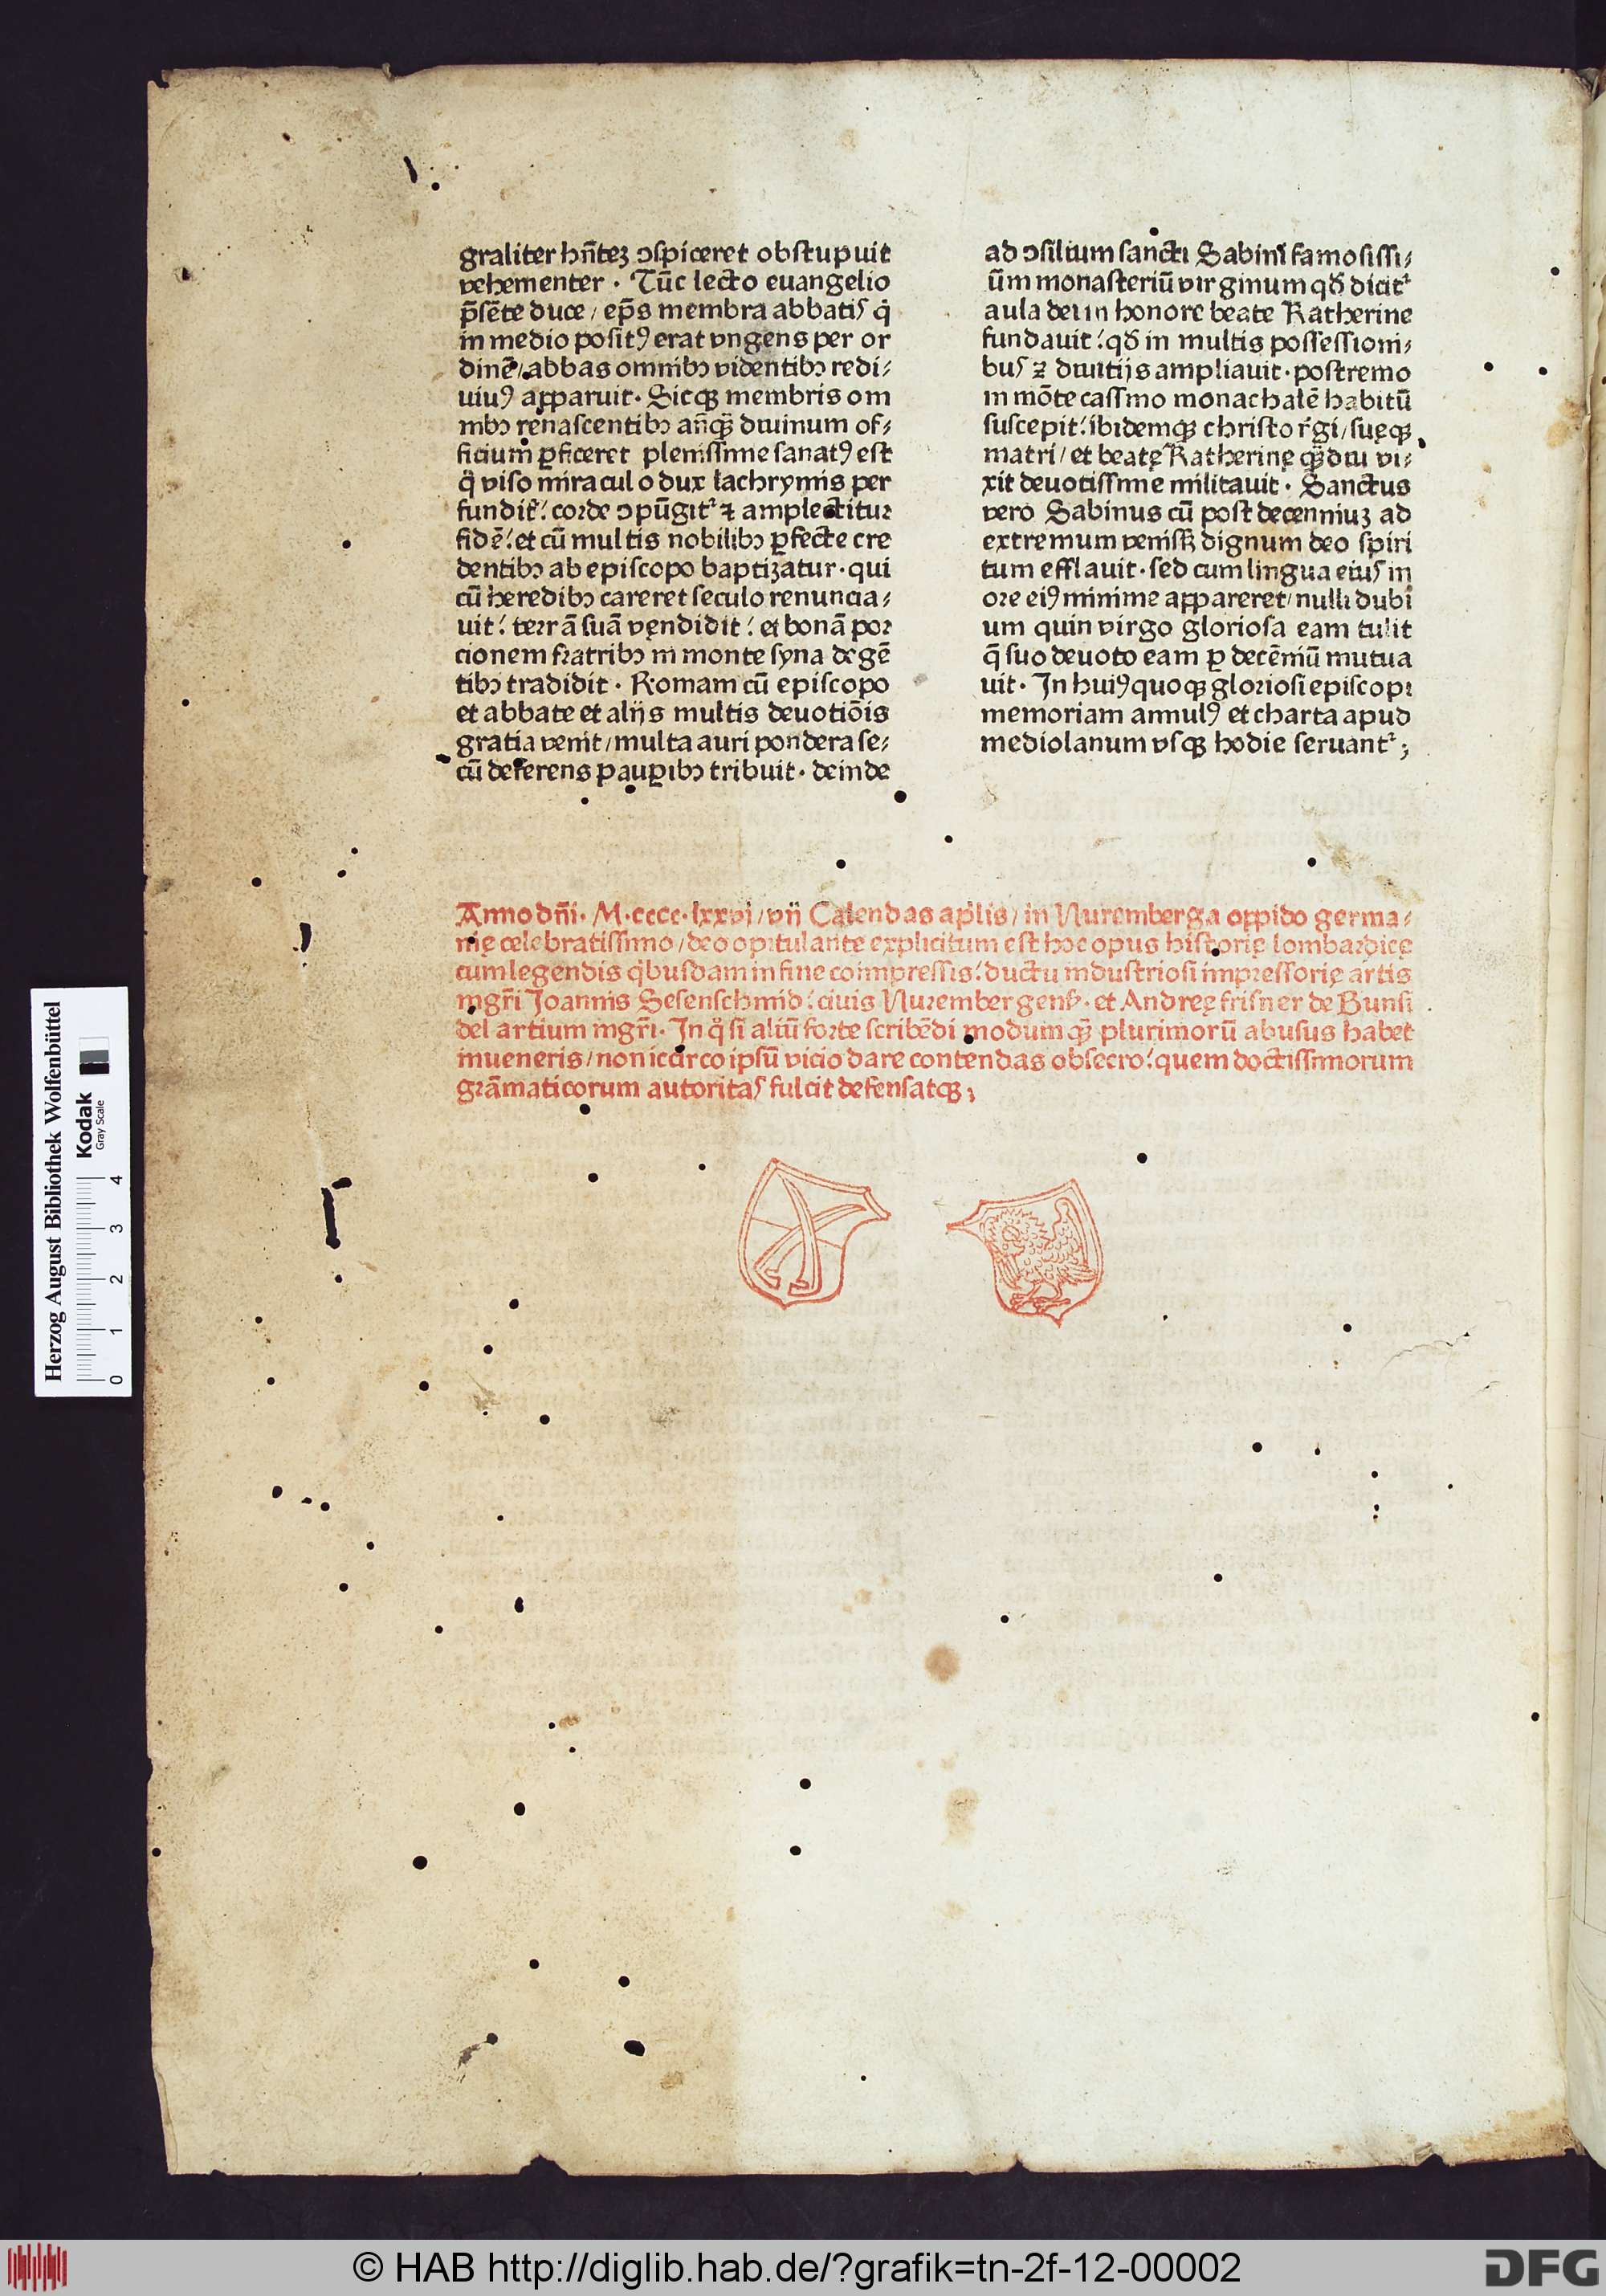 graliter hn̄teȝ ↄspiceret obstupuit
vehementer · Tūc lecto euangelio
p̄sēte duce / ep̄s membra abbatis q̇
in medio positꝰ erat vngens per or
dinē / abbas omnibꝫ videntibꝫ redi⸗
uiuꝰ apparuit · Sicqꝫ membris om
nibꝫ renascentibꝫ an̄qꝫ̄ diuinum of⸗
ficium ꝑficeret plenissime sanatꝰ est
q̊ viso miraculo dux lachrymis per
fundit᷑ : corde ↄpūgit᷑ ⁊ amplectitur
fidē : et cū multis nobilibꝫ ꝑfecte cre
dentibꝫ ab episcopo baptizatur · qui
cū heredibꝫ careret seculo renuncia⸗
uit : terrā suā vendidit : et bonā por
cionem fratribꝫ in monte syna degē
tibꝫ tradidit · Romam cū episcopo
et abbate et alijs multis deuotiōis
gratia venit / multa auri pondera se⸗
cū deferens pauꝑibꝫ tribuit · deinde
ad ↄsilium sancti Sabini famosissi⸗
ūm monasteriū virginum qd̄ dicit᷑
aula dei in honore beate Katherine
fundauit : qd̄ in multis possessioni⸗
bus ⁊ diuitijs ampliauit · postremo
in mōte cassino monachalē habitū
suscepit : ibidemqꝫ christo r̄gi / sueqꝫ
matri / et beatę Katherinę qꝫ̄diu vi⸗
xit deuotissime militauit · Sanctus
vero Sabinus cū post decenniuȝ ad
extremum venisset dignum deo spiri
tum efflauit · sed cum lingua eius in
ore eiꝰ minime appareret / nulli dubi
um quin virgo gloriosa eam tulit
q̄ suo deuoto eam ꝑ decēniū mutua
uit · In huiꝰ quoqꝫ gloriosi episcopi
memoriam annulꝰ et charta apud
mediolanum vsqꝫ hodie seruant᷑ ;
Anno dn̄i · M·cccc·lxxvj / vij Calendas ap̄lis / in Nuremberga oppido germa⸗
nię celebratissimo / deo opitulante explicitum est hoc opus historię lombardicę
cum legendis q̇busdam in fine coimpressis : ductu industriosi impressorię artis
mgr̄i Joannis Sesenschmid : ciuis Nurembergens̄ · et Andreę frisner de Bunsi
del artium mgr̄i · In q̊ si aliū forte scribēdi modum qꝫ̄ plurimorū abusus habet
inueneris / non iccirco ipsū vicio dare contendas obsecro : quem doctissimorum
grāmaticorum autoritas fulcit defensatqꝫ ;
Herzog August Bibliothek Wolfenbüttel
Kodak
Gray Scale
0 1 2 3 4
© HAB http://diglib.hab.de/?grafik=tn-2f-12-00002
DFG